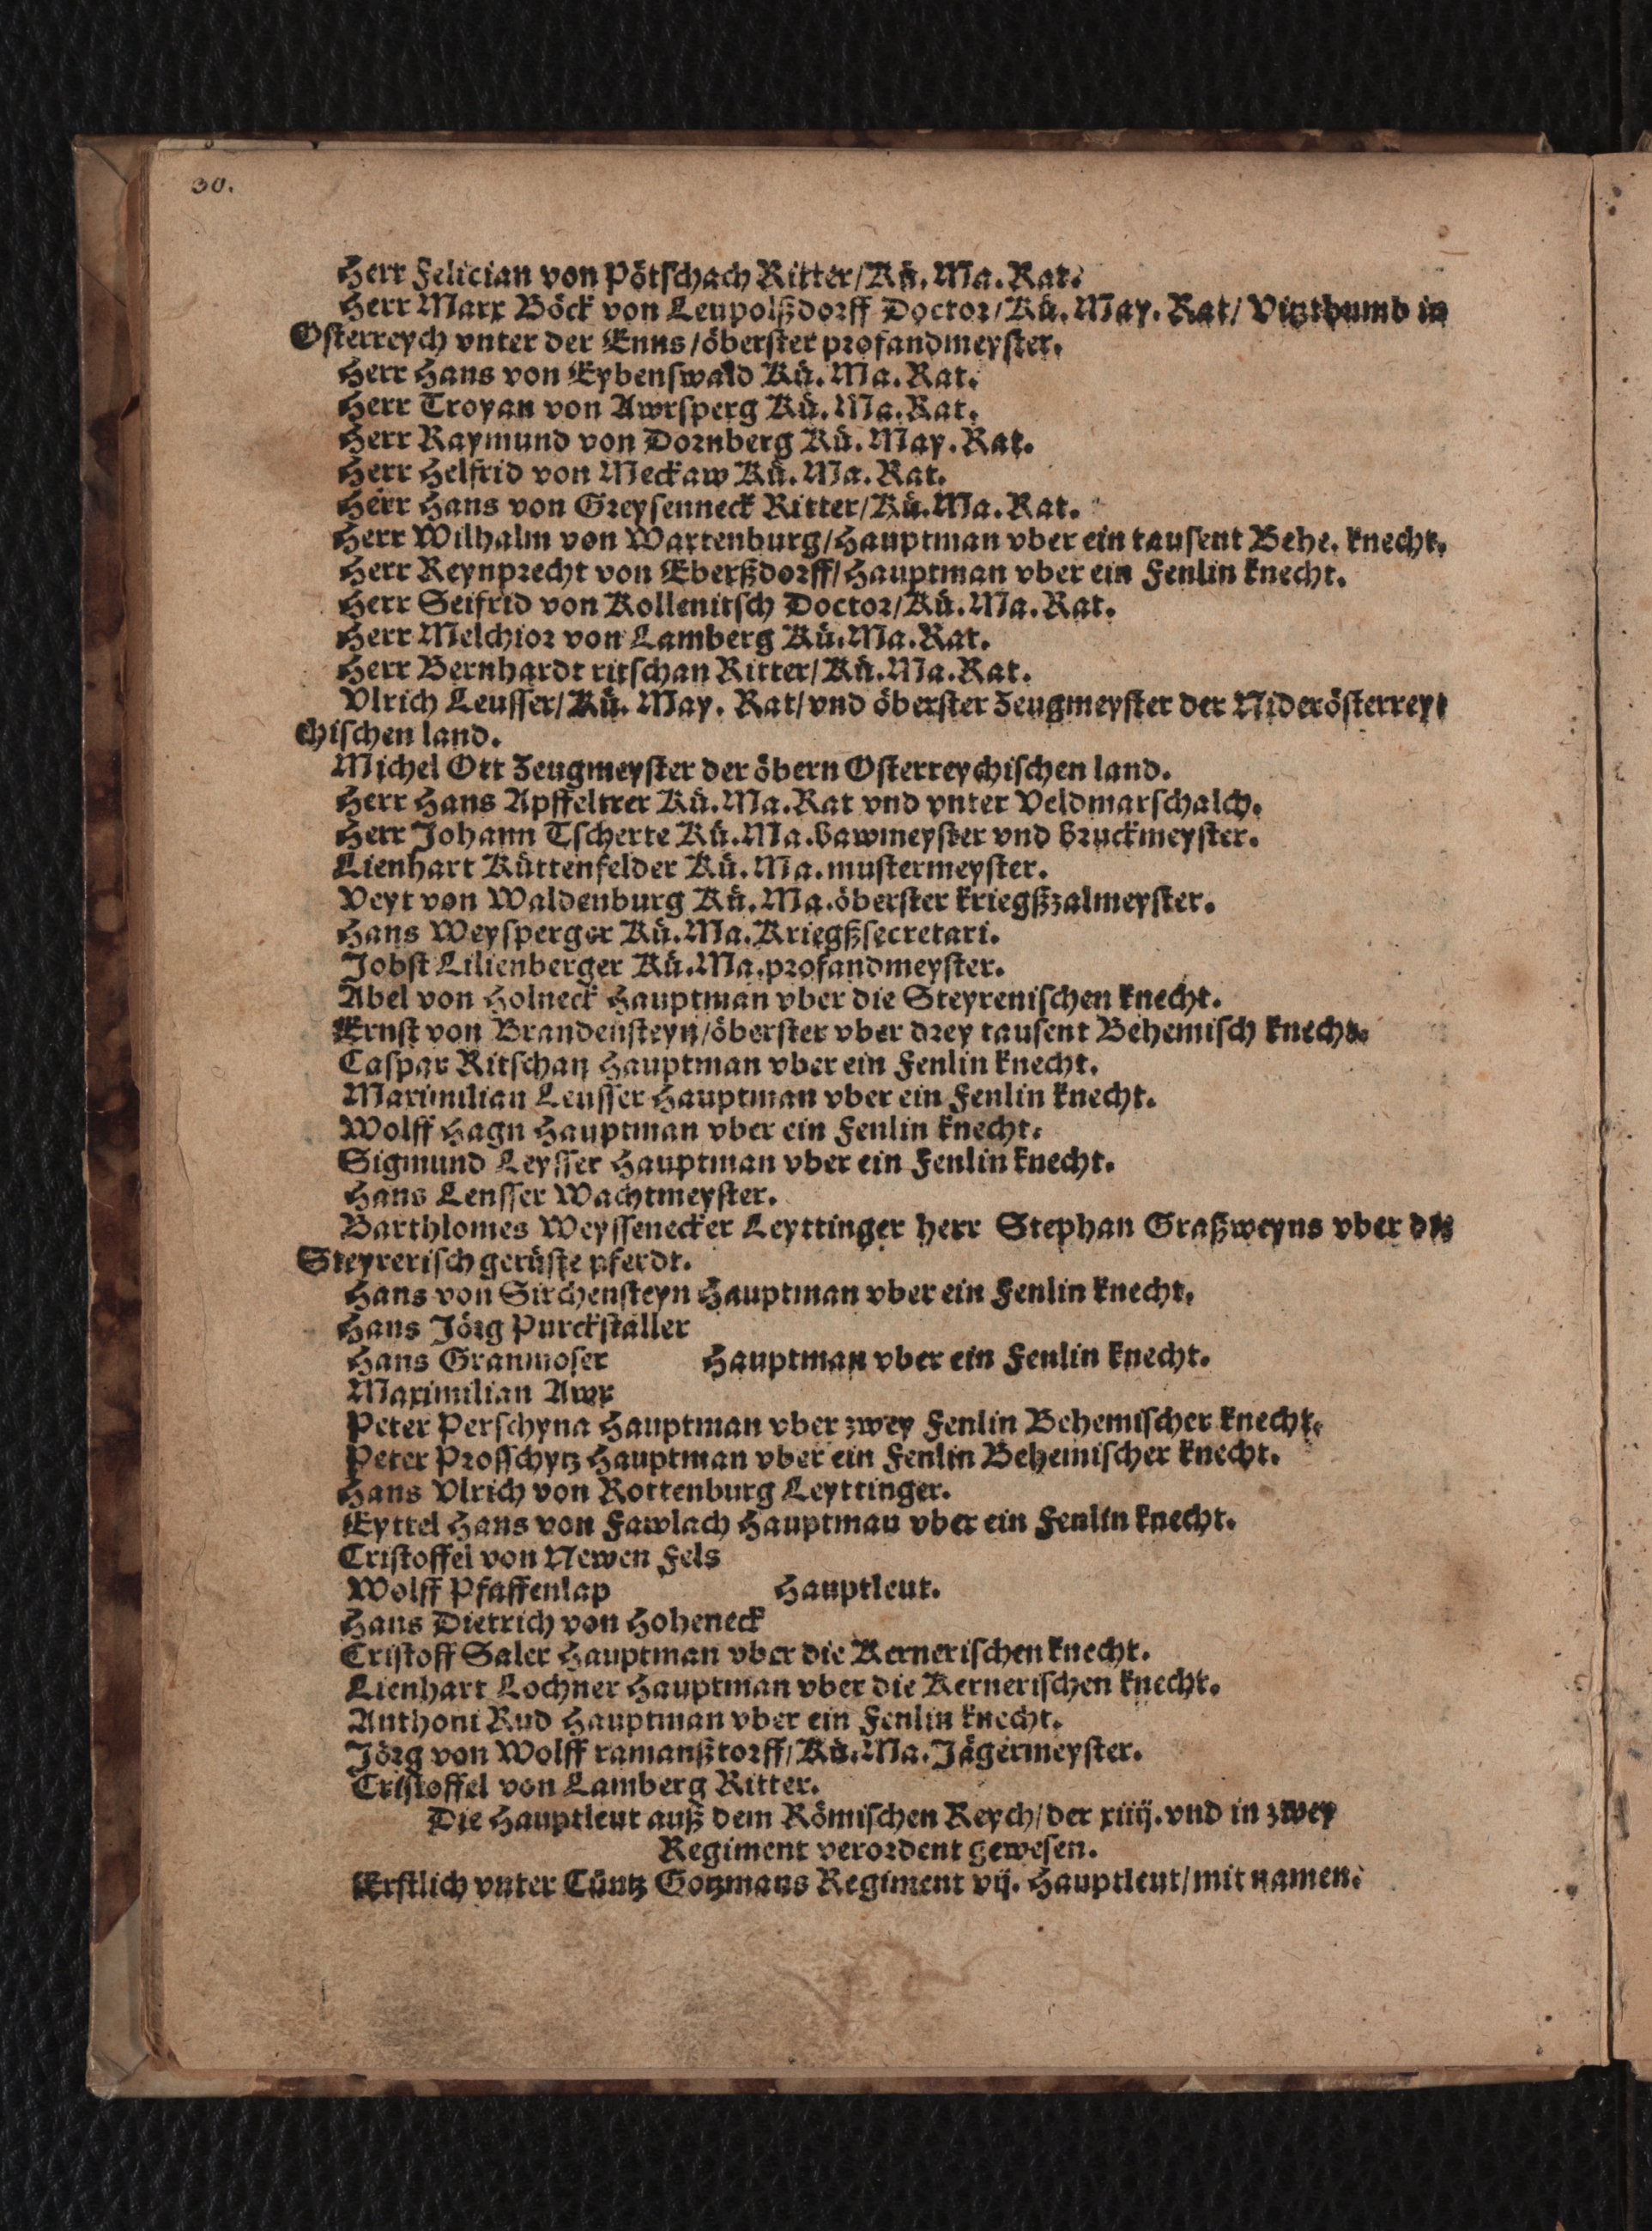 30.
Herr Felician von Pötschach Ritter/Kü. Ma. Rat.
Herr Marx Böck von Leupolßdorff Doctor/Kü. May. Rat/ Vitzthumb in
Osterreych vnter der Enns/öberster profandmeyster.
Herr Hans von Eybenswald Kü. Ma. Rat.
Herr Troyan von Awrsperg Kü. Ma. Rat.
Herr Raymund von Dornberg Kü. May. Rat.
Herr Helfrid von Meckaw Kü. Ma. Rat.
Herr Hans von Greysenneck Ritter/Kü. Ma. Rat.
Herr Wilhalm von Wartenburg/Hauptman vber ein tausent Behe. knecht.
Herr Reynprecht von Eberßdorff/Hauptman vber ein Fenlin knecht.
Herr Seifrid von Kollenitsch Doctor/Kü. Ma. Rat.
Herr Melchior von Lamberg Kü. Ma. Rat.
Herr Bernhardt ritschan Ritter/Kü. Ma. Rat.
Vlrich Leusser/Kü. May. Rat/vnd öberster Zeugmeyster der Niderösterrey⸗
chischen land.
Michel Ott Zeugmeyster der öbern Osterreychischen land.
Herr Hans Apffeltrer Kü. Ma. Rat vnd vnter Veldmarschalch.
Herr Johann Tscherte Kü. Ma. bawmeyster vnd bruckmeyster.
Lienhart Küttenfelder Kü. Ma. mustermeyster.
Veyt von Waldenburg Kü. Ma. öberster kriegßzalmeyster.
Hans Weysperger Kü. Ma. Kriegßsecretari.
Jobst Lilienberger Kü. Ma. profandmeyster.
Abel von Holneck Hauptman vber die Steyrenischen knecht.
Ernst von Brandensteyn/öberster vber drey tausent Behemisch knecht.
Caspar Ritschan Hauptman vber ein Fenlin knecht.
Maximilian Leusser Hauptman vber ein Fenlin knecht.
Wolff Hagn Hauptman vber ein Fenlin knecht.
Sigmund Leysser Hauptman vber ein Fenlin knecht.
Hans Leusser Wachtmeyster.
Barthlomes Weyssenecker Leyttinger herr Stephan Graßweyns vber die
Steyrerisch gerüste pferdt.
Hans von Sirchensteyn Hauptman vber ein Fenlin knecht.
Hans Jörg Purckstaller
Hans Granmoser Hauptman vber ein Fenlin knecht.
Maximilian Awr
Peter Perschyna Hauptman vber zwey Fenlin Behemischer knecht.
Peter Prosschytz Hauptman vber ein Fenlin Behemischer knecht.
Hans Vlrich von Rottenburg Leyttinger.
Eyttel Hans von Fawlach Hauptman vber ein Fenlin knecht.
Cristoffel von Newen Fels
Wolff Pfaffenlap Hauptleut.
Hans Dietrich von Hoheneck
Cristoff Saler Hauptman vber die Kernerischen knecht.
Lienhart Lochner Hauptman vber die Kernerischen knecht.
Anthoni Rud Hauptman vber ein Fenlin knecht.
Jörg von Wolff ramanßtorff/Kü. Ma. Jägermeyster.
Cristoffel von Lamberg Ritter.
Die Hauptleut auß dem Römischen Reych/der xiiij. vnd in zwey
Regiment verordent gewesen.
Erstlich vnter Cüntz Gotzmans Regiment vij. Hauptleut/mit namen.